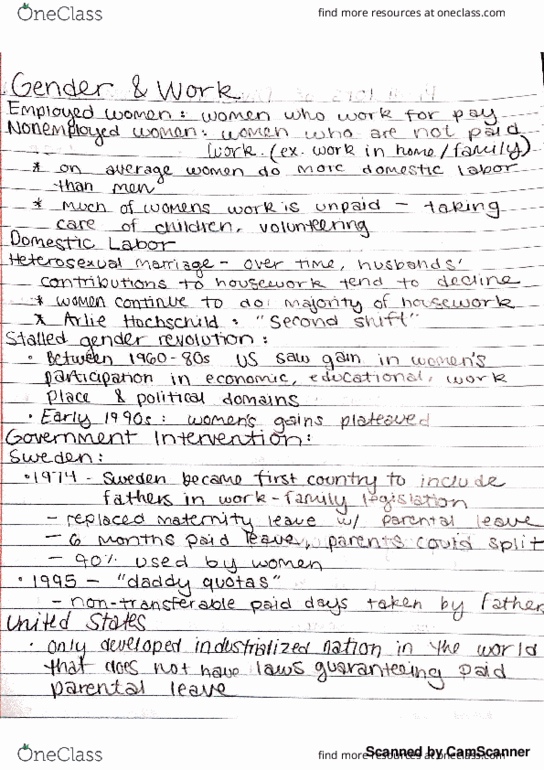 OneClass
find more resources at oneclass.com
Gender & Work
Employed women: women who work for pay
Nonemployed women: women who are not paid
work. (ex. work in home/family)
* on average women do more domestic labor
than men
* Much of womens work is unpaid - taking
care of children, volunteering
Domestic Labor
Heterosexual marriage - over time, husbands'
contributions to housework tend to decline
* women continue to do majority of housework
* Arlie Hochschild: "Second shift"
Stalled gender revolution:
• Between 1960-80s US saw gain in women's
participation in economic, educational, work
place & political domains
• Early 1990s: women's gains plateaued
Government Intervention:
Sweden:
• 1974 - Sweden became first country to include
fathers in work-family legislation
- replaced maternity leave w/ parental leave
- 6 months paid leave, parents could split
- 90% used by women
• 1995 - "daddy quotas"
- non-transferable paid days taken by father
United States
• only developed industrialized nation in the world
that does not have laws guaranteeing paid
parental leave
OneClass
find more resources at oneclass.com
Scanned by CamScanner